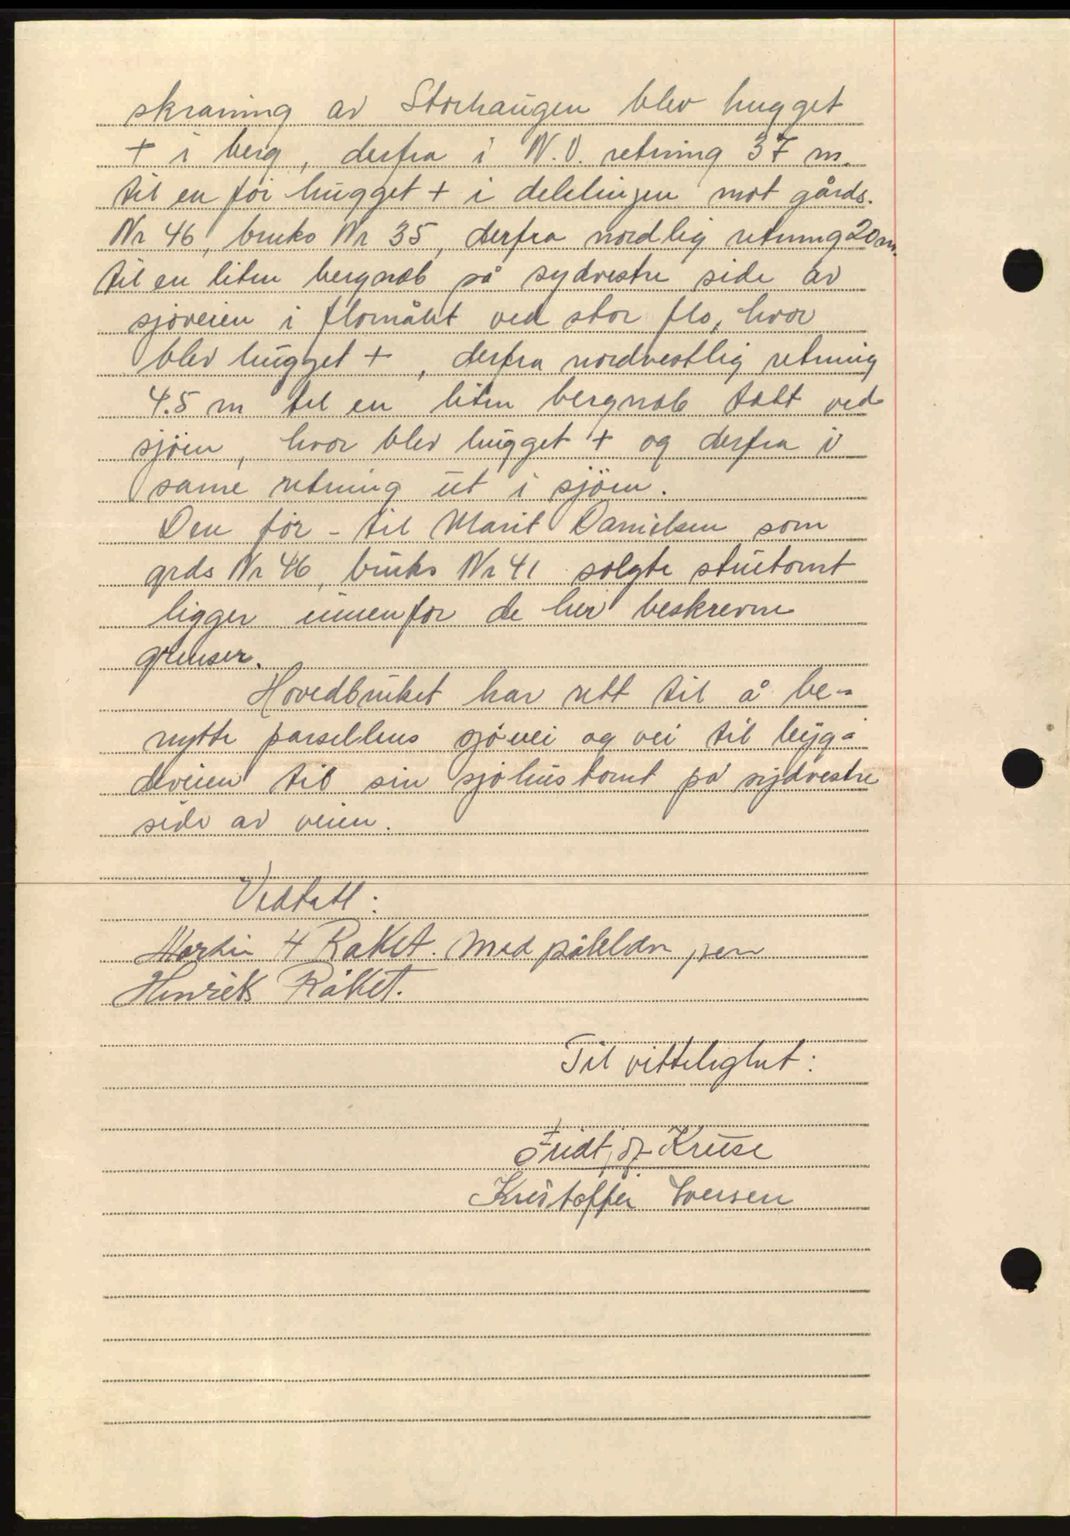 skraning av Storhaugen blev hugget
+ i berg, derfra i N.O. retning 37 m.
til en før hugget + i delelinjen mot gårds.
Nr 46, bruks Nr 35, derfra nordlig retning 20 m.
til en liten bergnab på sydvestre side av
sjøveien i flomålet ved stor flo, hvor
blev hugget +, derfra nordvestlig retning
4.5 m til en liten bergnab tett ved
sjöen, hvor blev hugget + og derfra i
same retning ut i sjöen.
Den før - til Marit Danielsen som
grds Nr 46, bruks Nr 41 solgte stuetomt
ligger innenfor de her beskrevne
grenser.
Hovedbruket har rett til å be-
nytte parsellens sjövei og vei til byg-
deveien til sin sjøhustomt på sydvestre
side av veien.
Vedtatt:
Martin H Raket. med påholden pen
Henrik Råket.
Til vitterlighet:
Fridtjof Kruse
Kristoffer Iversen